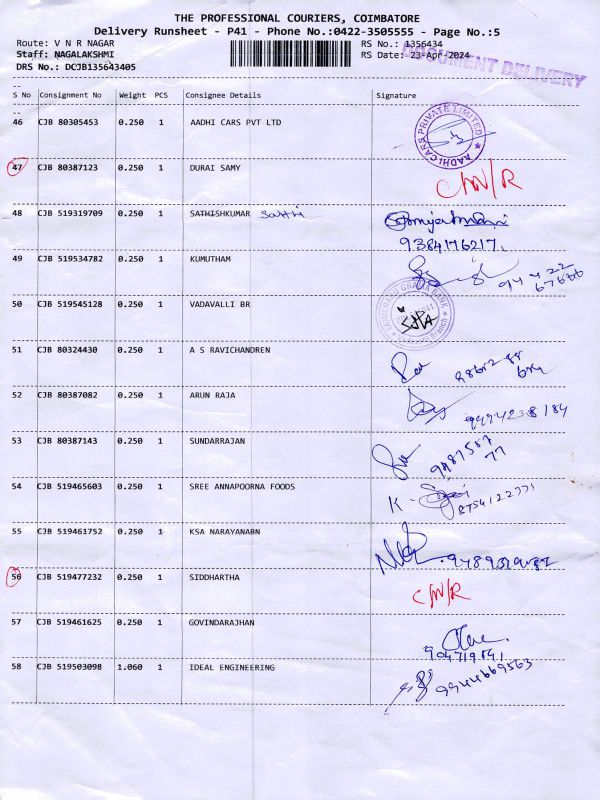 THE PROFESSIONAL COURIERS, COIMBATORE
Delivery Runsheet - P41 - Phone No.:0422-3505555 - Page No.:5
Route: V N R NAGAR RS No.: 1356434
Staff: NAGALAKSHMI RS Date: 23-Apr-2024
DOCUMENT DELIVERY
DRS No.: DCJB135643405
S No Consignment No Weight PCS Consignee Details Signature
46 CJB 80305453 0.250 1 AADHI CARS PVT LTD
AADHI CARS PRIVATE LIMITED
47 CJB 80387123 0.250 1 DURAI SAMY
C/N/R
48 CJB 519319709 0.250 1 SATHISHKUMAR
9384176217.
49 CJB 519534782 0.250 1 KUMUTHAM
50 CJB 519545128 0.250 1 VADAVALLI BR
51 CJB 80324430 0.250 1 A S RAVICHANDREN
52 CJB 80387082 0.250 1 ARUN RAJA
53 CJB 80387143 0.250 1 SUNDARRAJAN
54 CJB 519465603 0.250 1 SREE ANNAPOORNA FOODS
55 CJB 519461752 0.250 1 KSA NARAYANABN
56 CJB 519477232 0.250 1 SIDDHARTHA
C/N/R
57 CJB 519461625 0.250 1 GOVINDARAJHAN
58 CJB 519503098 1.060 1 IDEAL ENGINEERING
9944669563